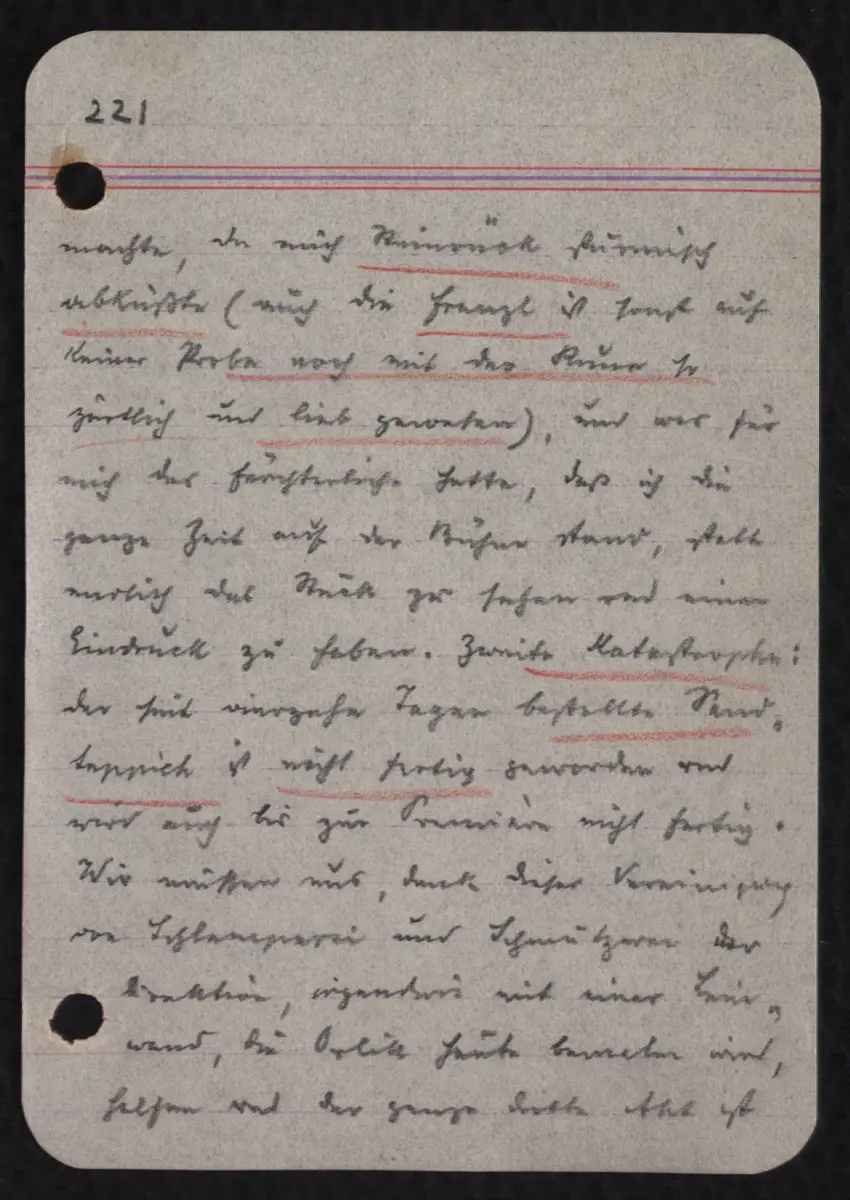 221
machte, da mich Steinrück stürmisch
abküßte (auch die Frenzl ist sonst auf
keiner Probe noch mit der Kuno so
zärtlich und lieb gewesen), und was für
mich das Fürchterliche hatte, daß ich die
ganze Zeit auf der Bühne stand, statt
endlich das Stück zu sehen und einen
Eindruck zu haben. Zweite Katastrophe:
der seit vierzehn Tagen bestellte Sand„
teppich ist nicht fertig geworden und
wird auch bis zur Premiere nicht fertig.
Wir müssen uns, dank dieser Vereinigung
von Schlamperei und Schmutzerei der
Direktion, irgendwie mit einer Lein„
wand, die Orlik heute bemalen wird,
helfen und der ganze dritte Akt ist